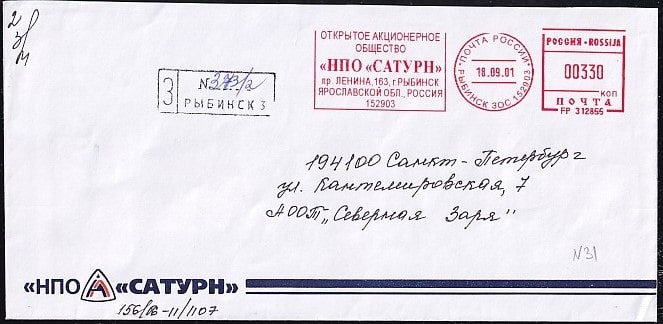 2
3/4
ОТКРЫТОЕ АКЦИОНЕРНОЕ
ОБЩЕСТВО
«НПО «САТУРН»
пр. ЛЕНИНА, 163, г. РЫБИНСК
ЯРОСЛАВСКОЙ ОБЛ., РОССИЯ
152903
*ПОЧТА РОССИИ*
18.09.01
РЫБИНСК 3ОС 152903
РОССИЯ • ROSSIJA
00330
КОП
ПОЧТА
FP 312855
3
N
РЫБИНСК 3
194100 Санкт-Петербург
ул. Кантемировская, 7
АООТ „Северная Заря"
N31
«НПО «САТУРН»
156/06-11/1107